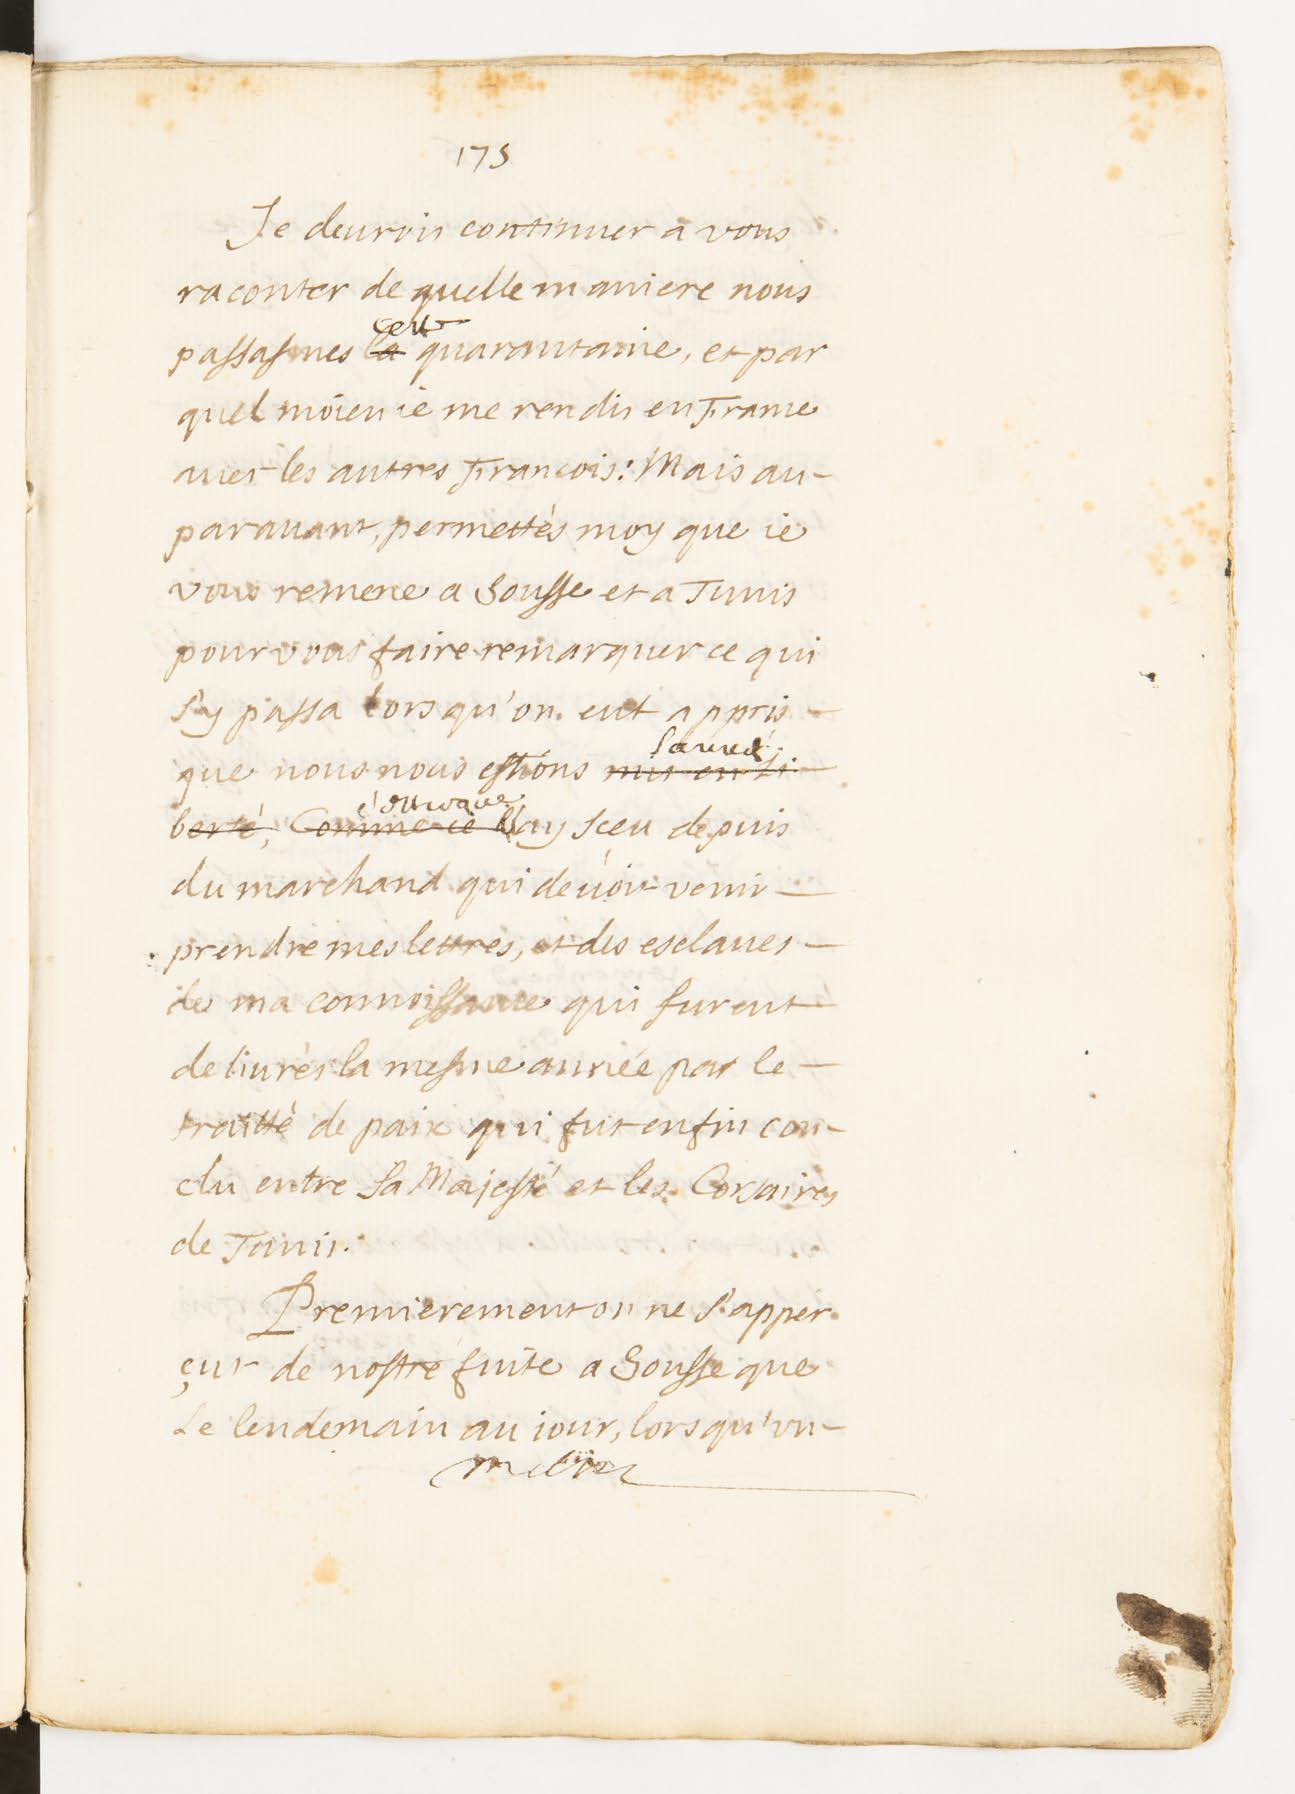 175
Je deurois continuer a vous
raconter de quelle maniere nous
cette
passasmes la quarantaine, et par
quel moien ie me rendis en France
auec les autres Francois: Mais au-
parauant, permettés moy que ie
vous remene a Sousse et a Tunis
pour vous faire remarquer ce qui
s'y passa lors qu'on eut appris
sauués
que nous nous estions mis en li
berté, Comme ie l'ay sceu depuis
du marchand qui deuoit venir
prendre mes lettres, et des esclaues
de ma connoissance qui furent
deliurés la mesme année par le
traitté de paix qui fut enfin con-
clu entre Sa Majesté et les Corsaires
de Tunis.
Premierement on ne s'apper
çut de nostre fuite a Sousse que
Le lendemain au iour, lors qu'vn